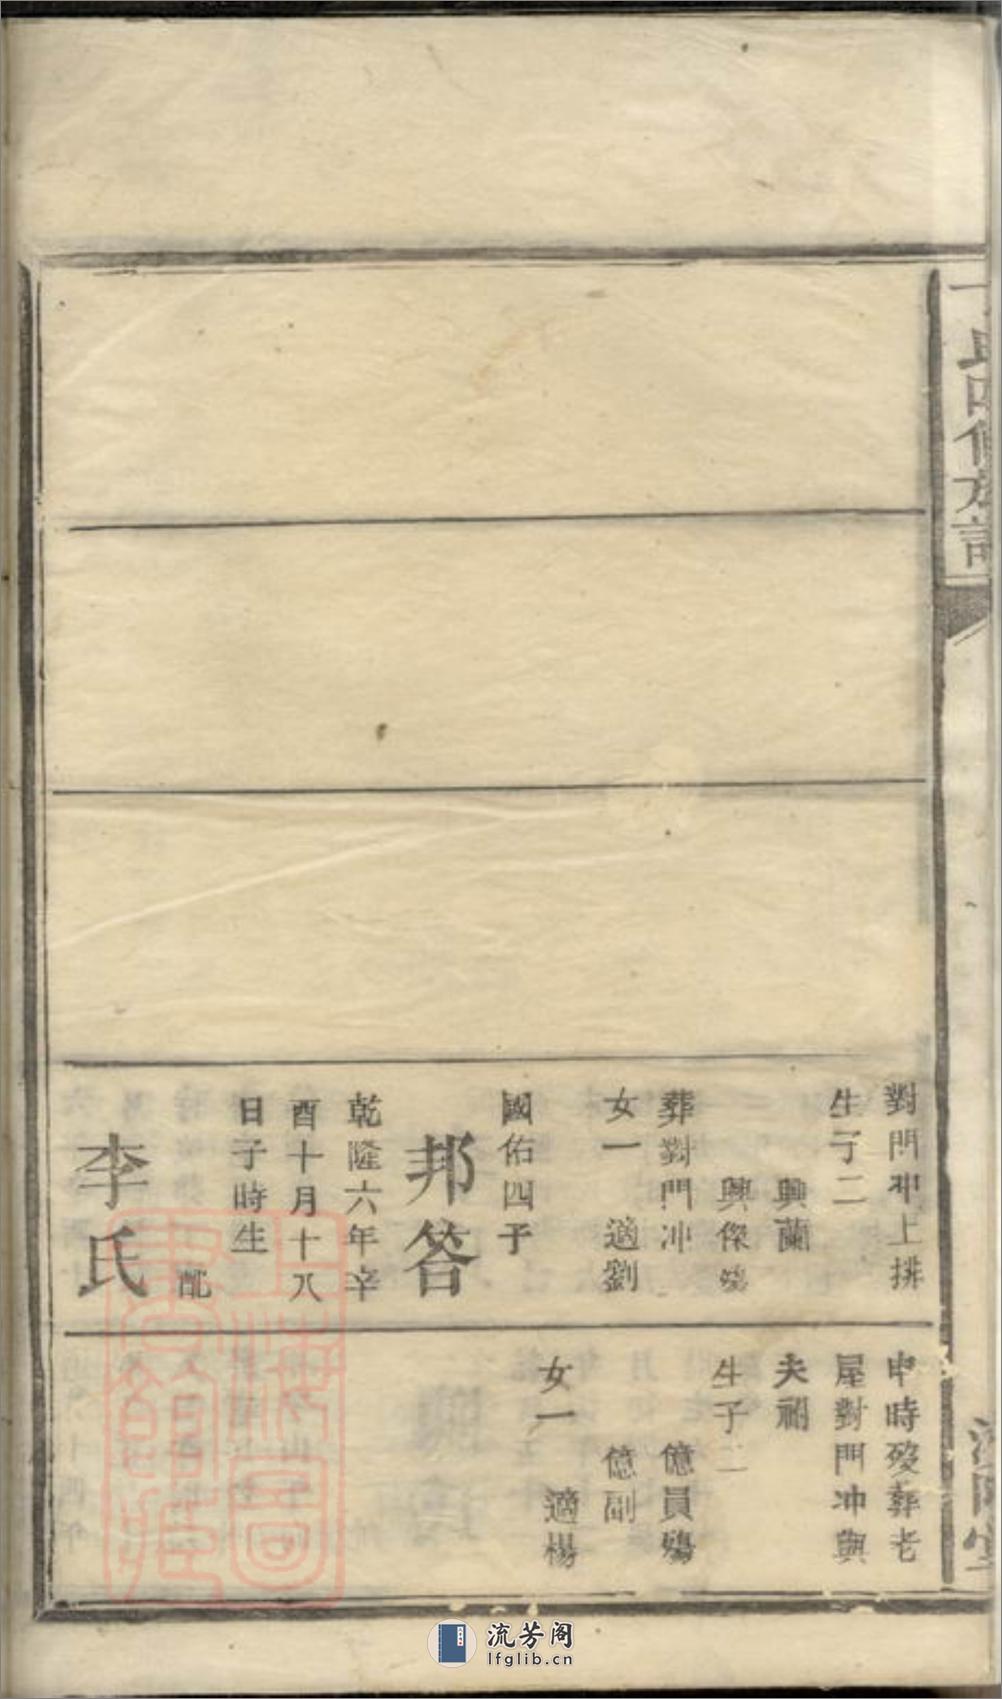 氏四修族譜
對門冲上排
生子二
興蘭
興傑殤
葬對門冲
女一 適劉
國佑四子
邦答
乾隆六年辛
酉十月十八
日子時生
配
李氏
申時歿葬老
屋對門冲與
夫祔
生子二
億員殤
億副
女一 適楊
上海圖書館藏
流芳阁
lfglib.cn